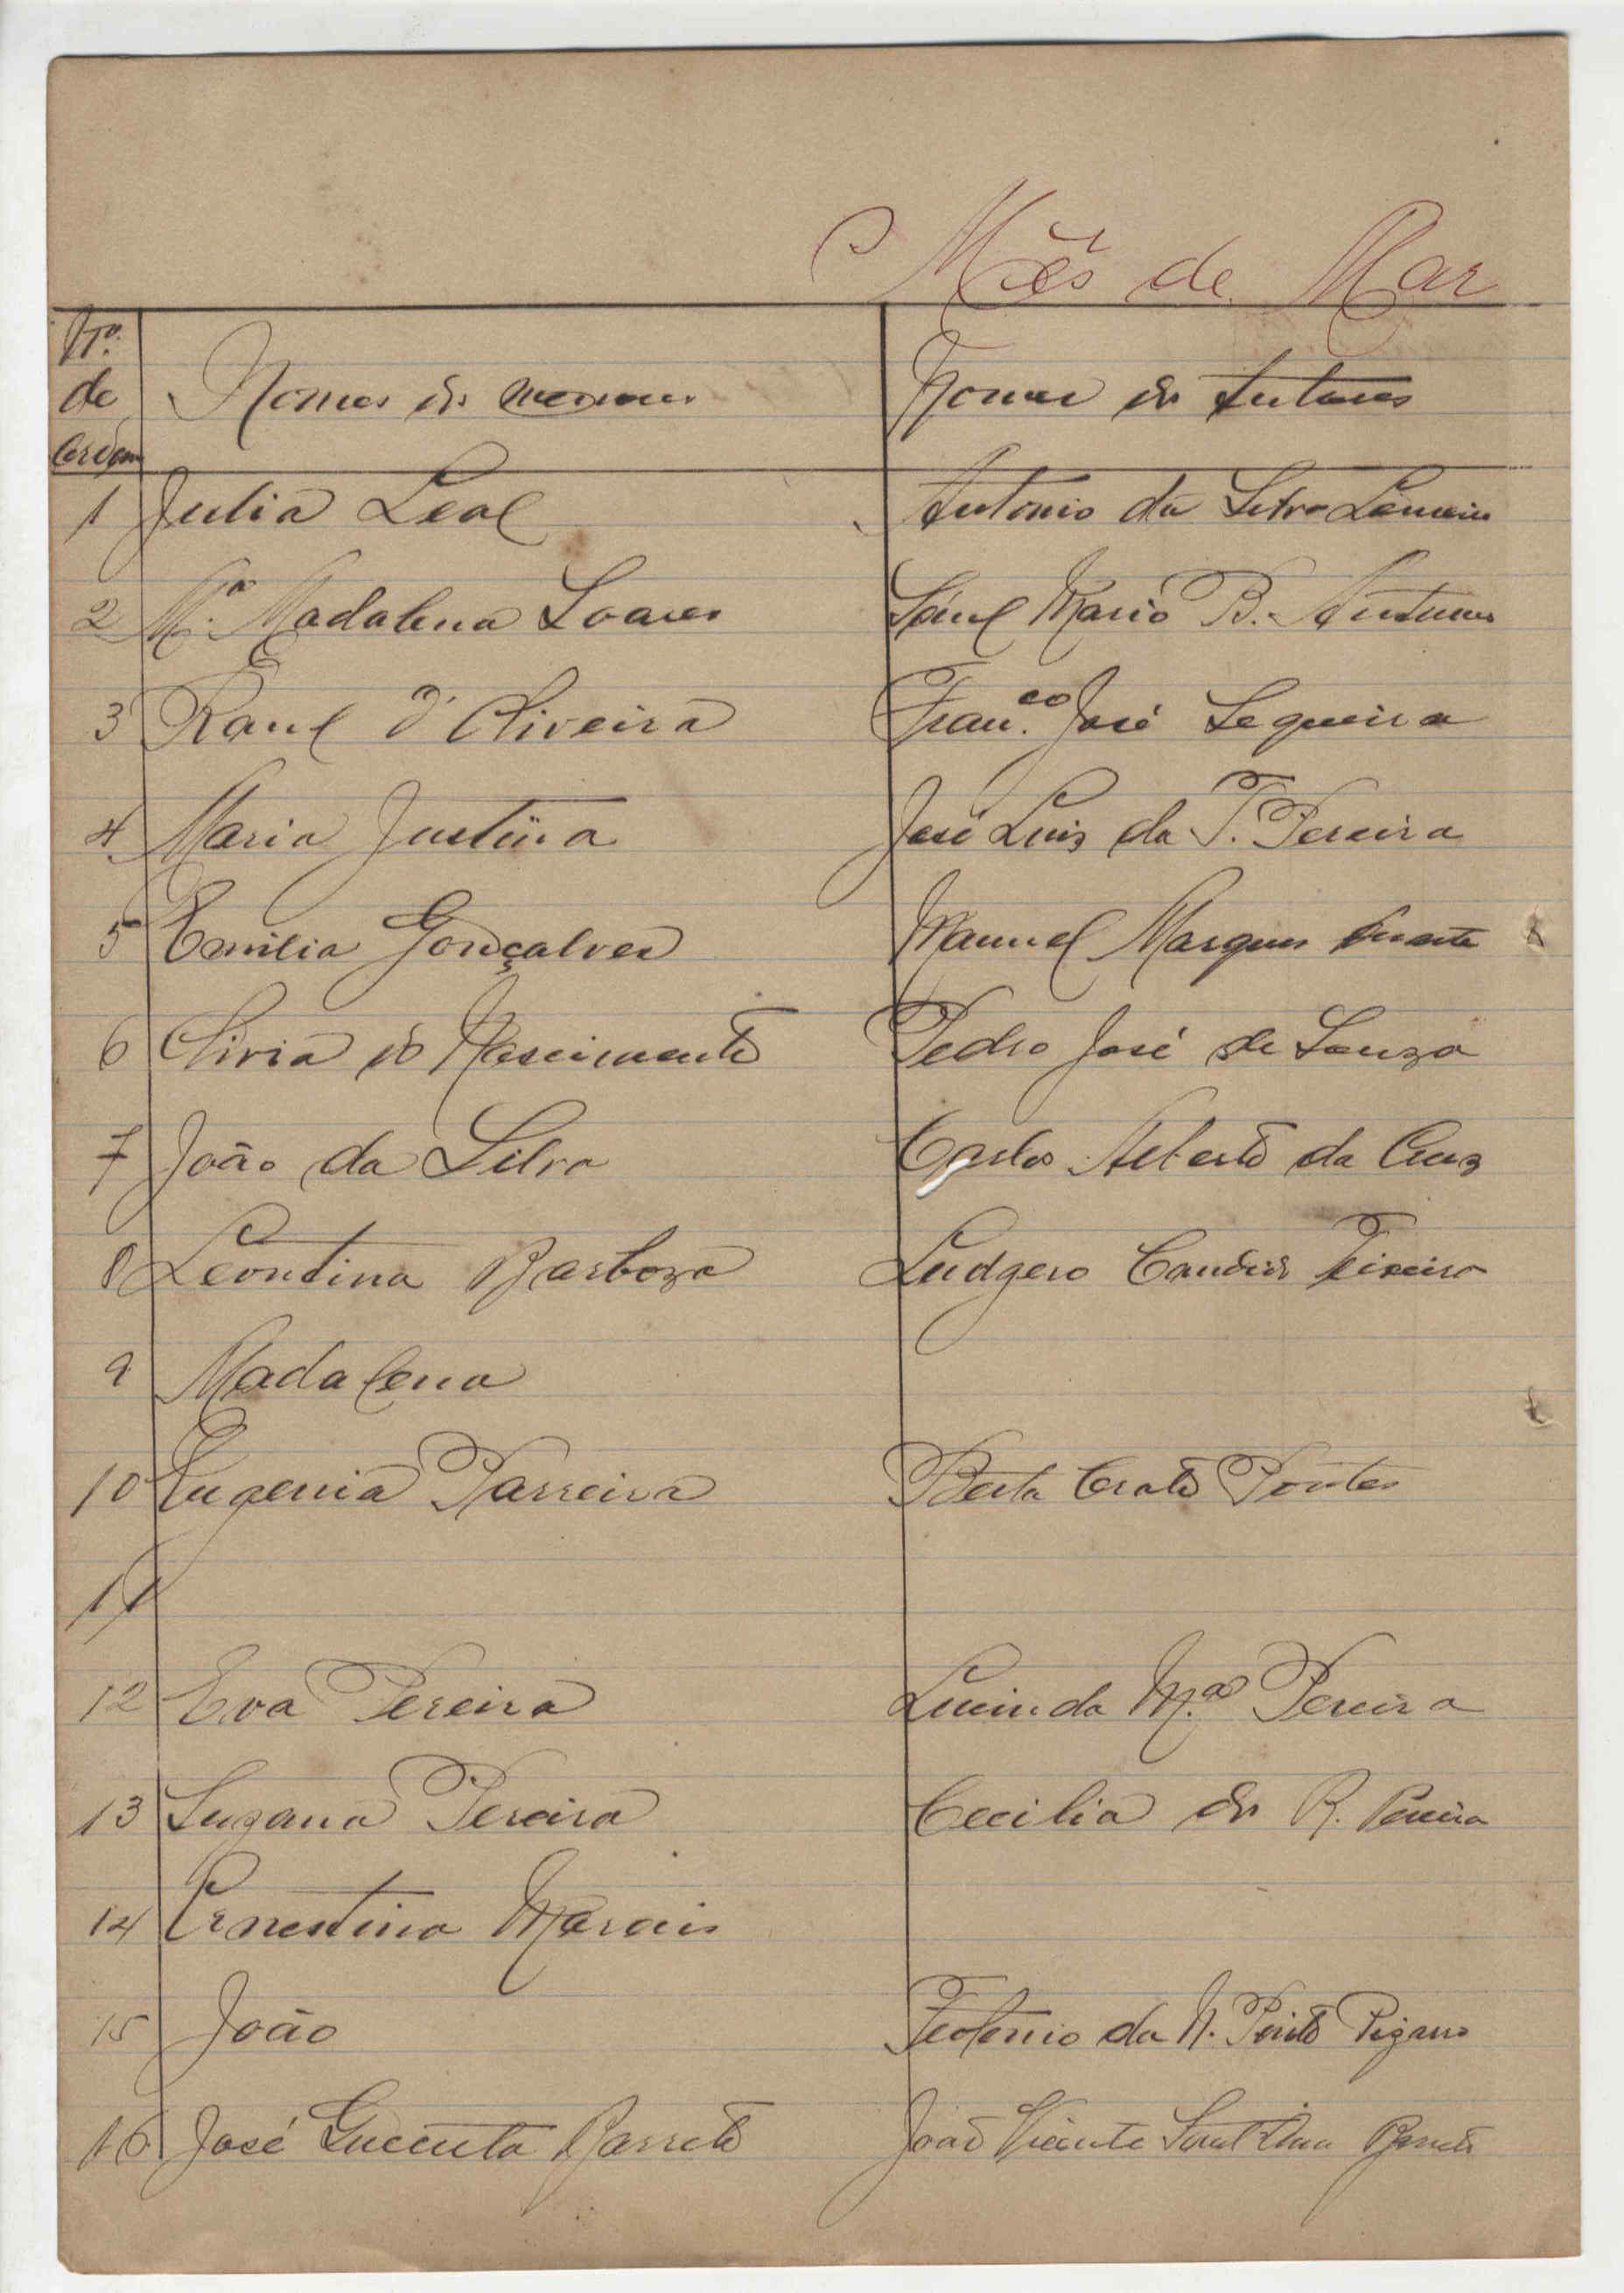 Mês de Mar
Nº
de
Ordem
Nomes dos menores
Nomes dos tutores
1 Julia Leal Antonio da Silva
2 Mª Madalena Soares Mario B. Antunes
3 Raul d'Oliveira Fran.co José Sequeira
4 Maria Justina José Luis da T. Pereira
5 Emilia Gonçalves Manuel Marques Duarte
6 Olivia do Nascimento Pedro José de Souza
7 João da Silva Carlos Alberto da Cruz
8 Leontina Barboza Ludgero Candido Teixeira
9 Madalena
10 Eugenia Parreira Berta Crato Pontes
11
12 Eva Pereira Lucinda M.ª Pereira
13 Suzana Pereira Cecilia do R. Pereira
14 Ernestina Morais
15 João Teotonio da N. Pinto Pizarro
16 José Barreto João Vicente Sant'Ana Barreto